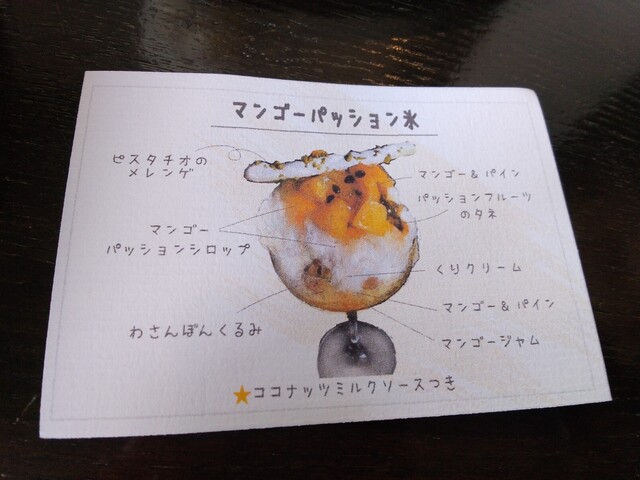 マンゴーパッション氷
ピスタチオの
メレンゲ
マンゴー&パイン
パッションフルーツ
のタネ
マンゴー
パッションシロップ
くりクリーム
マンゴー&パイン
わさんぼんくるみ
マンゴージャム
★ココナッツミルクソースつき